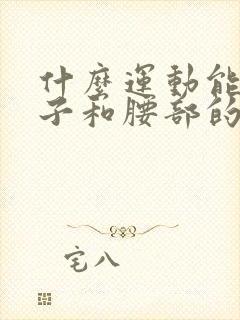 什麼運動能
子和腰部的
宅八